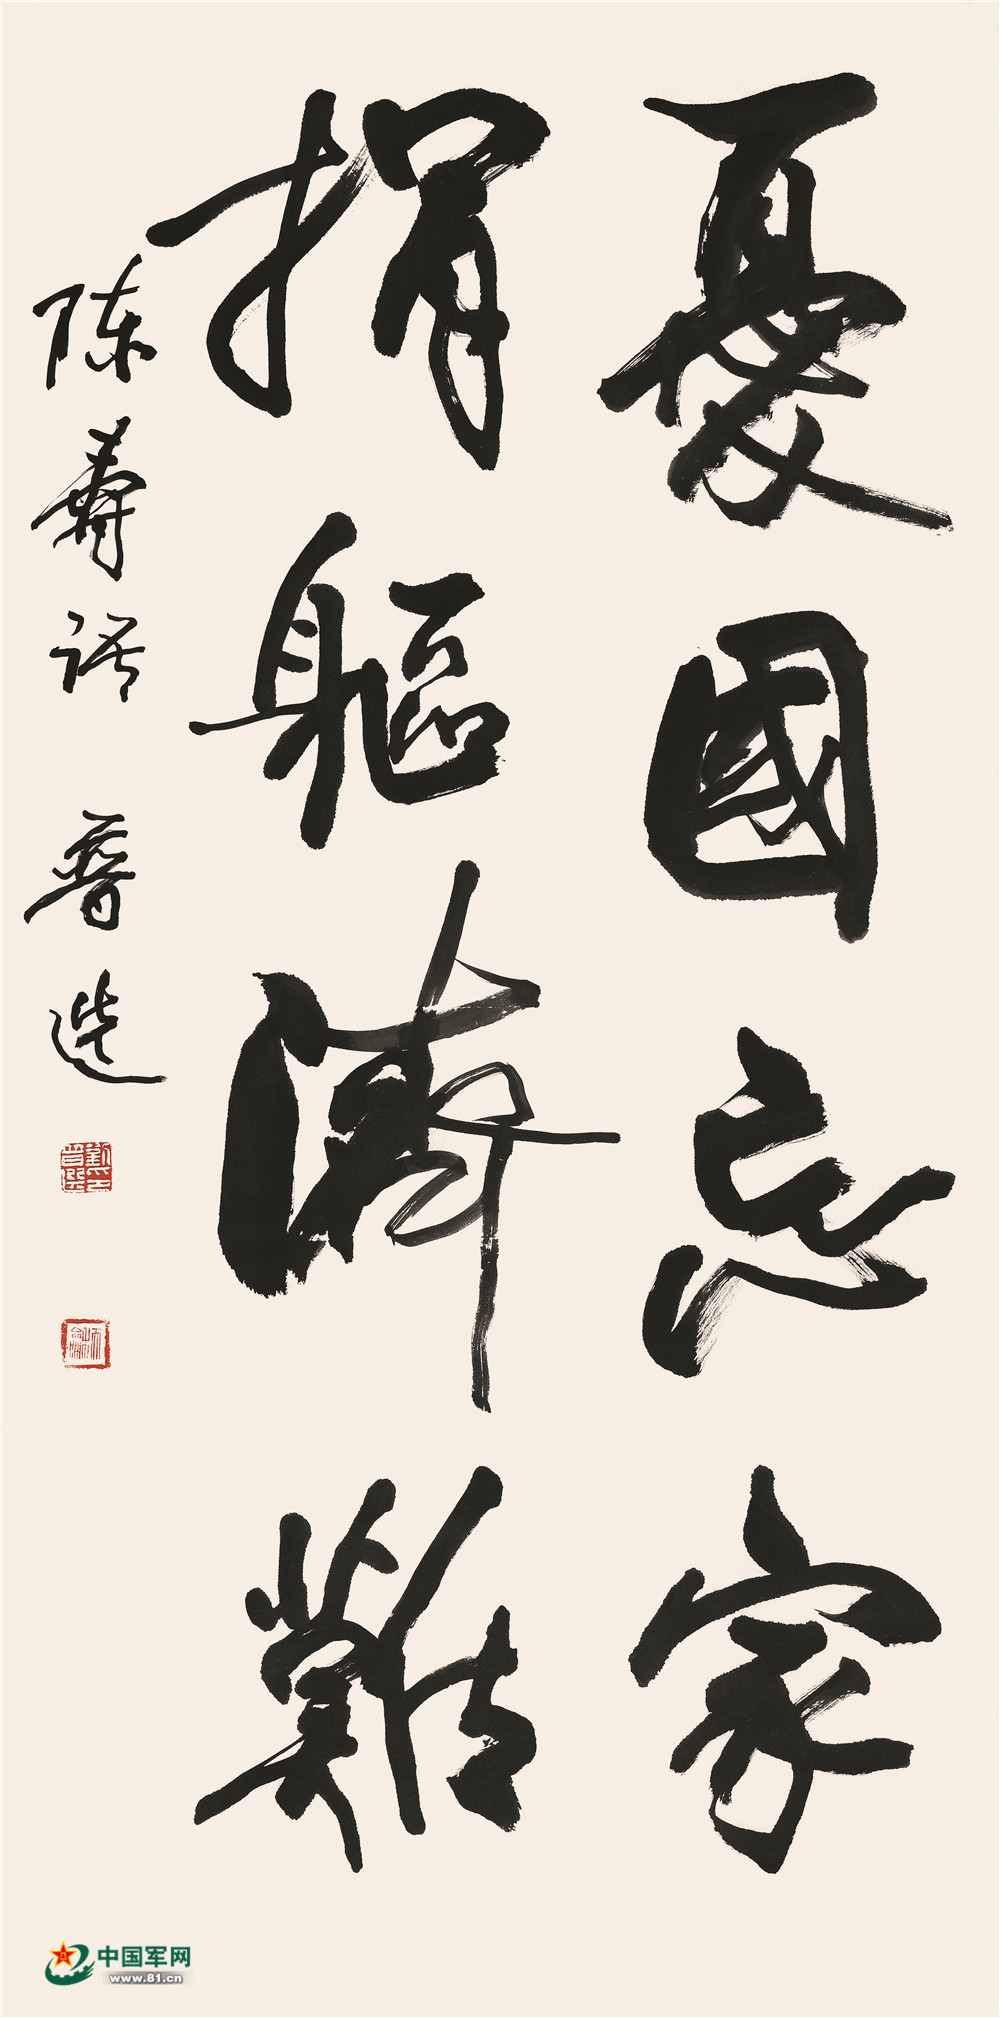 憂國忘家
捐軀濟難
陈壽语 普選
中国军网
www.81.cn